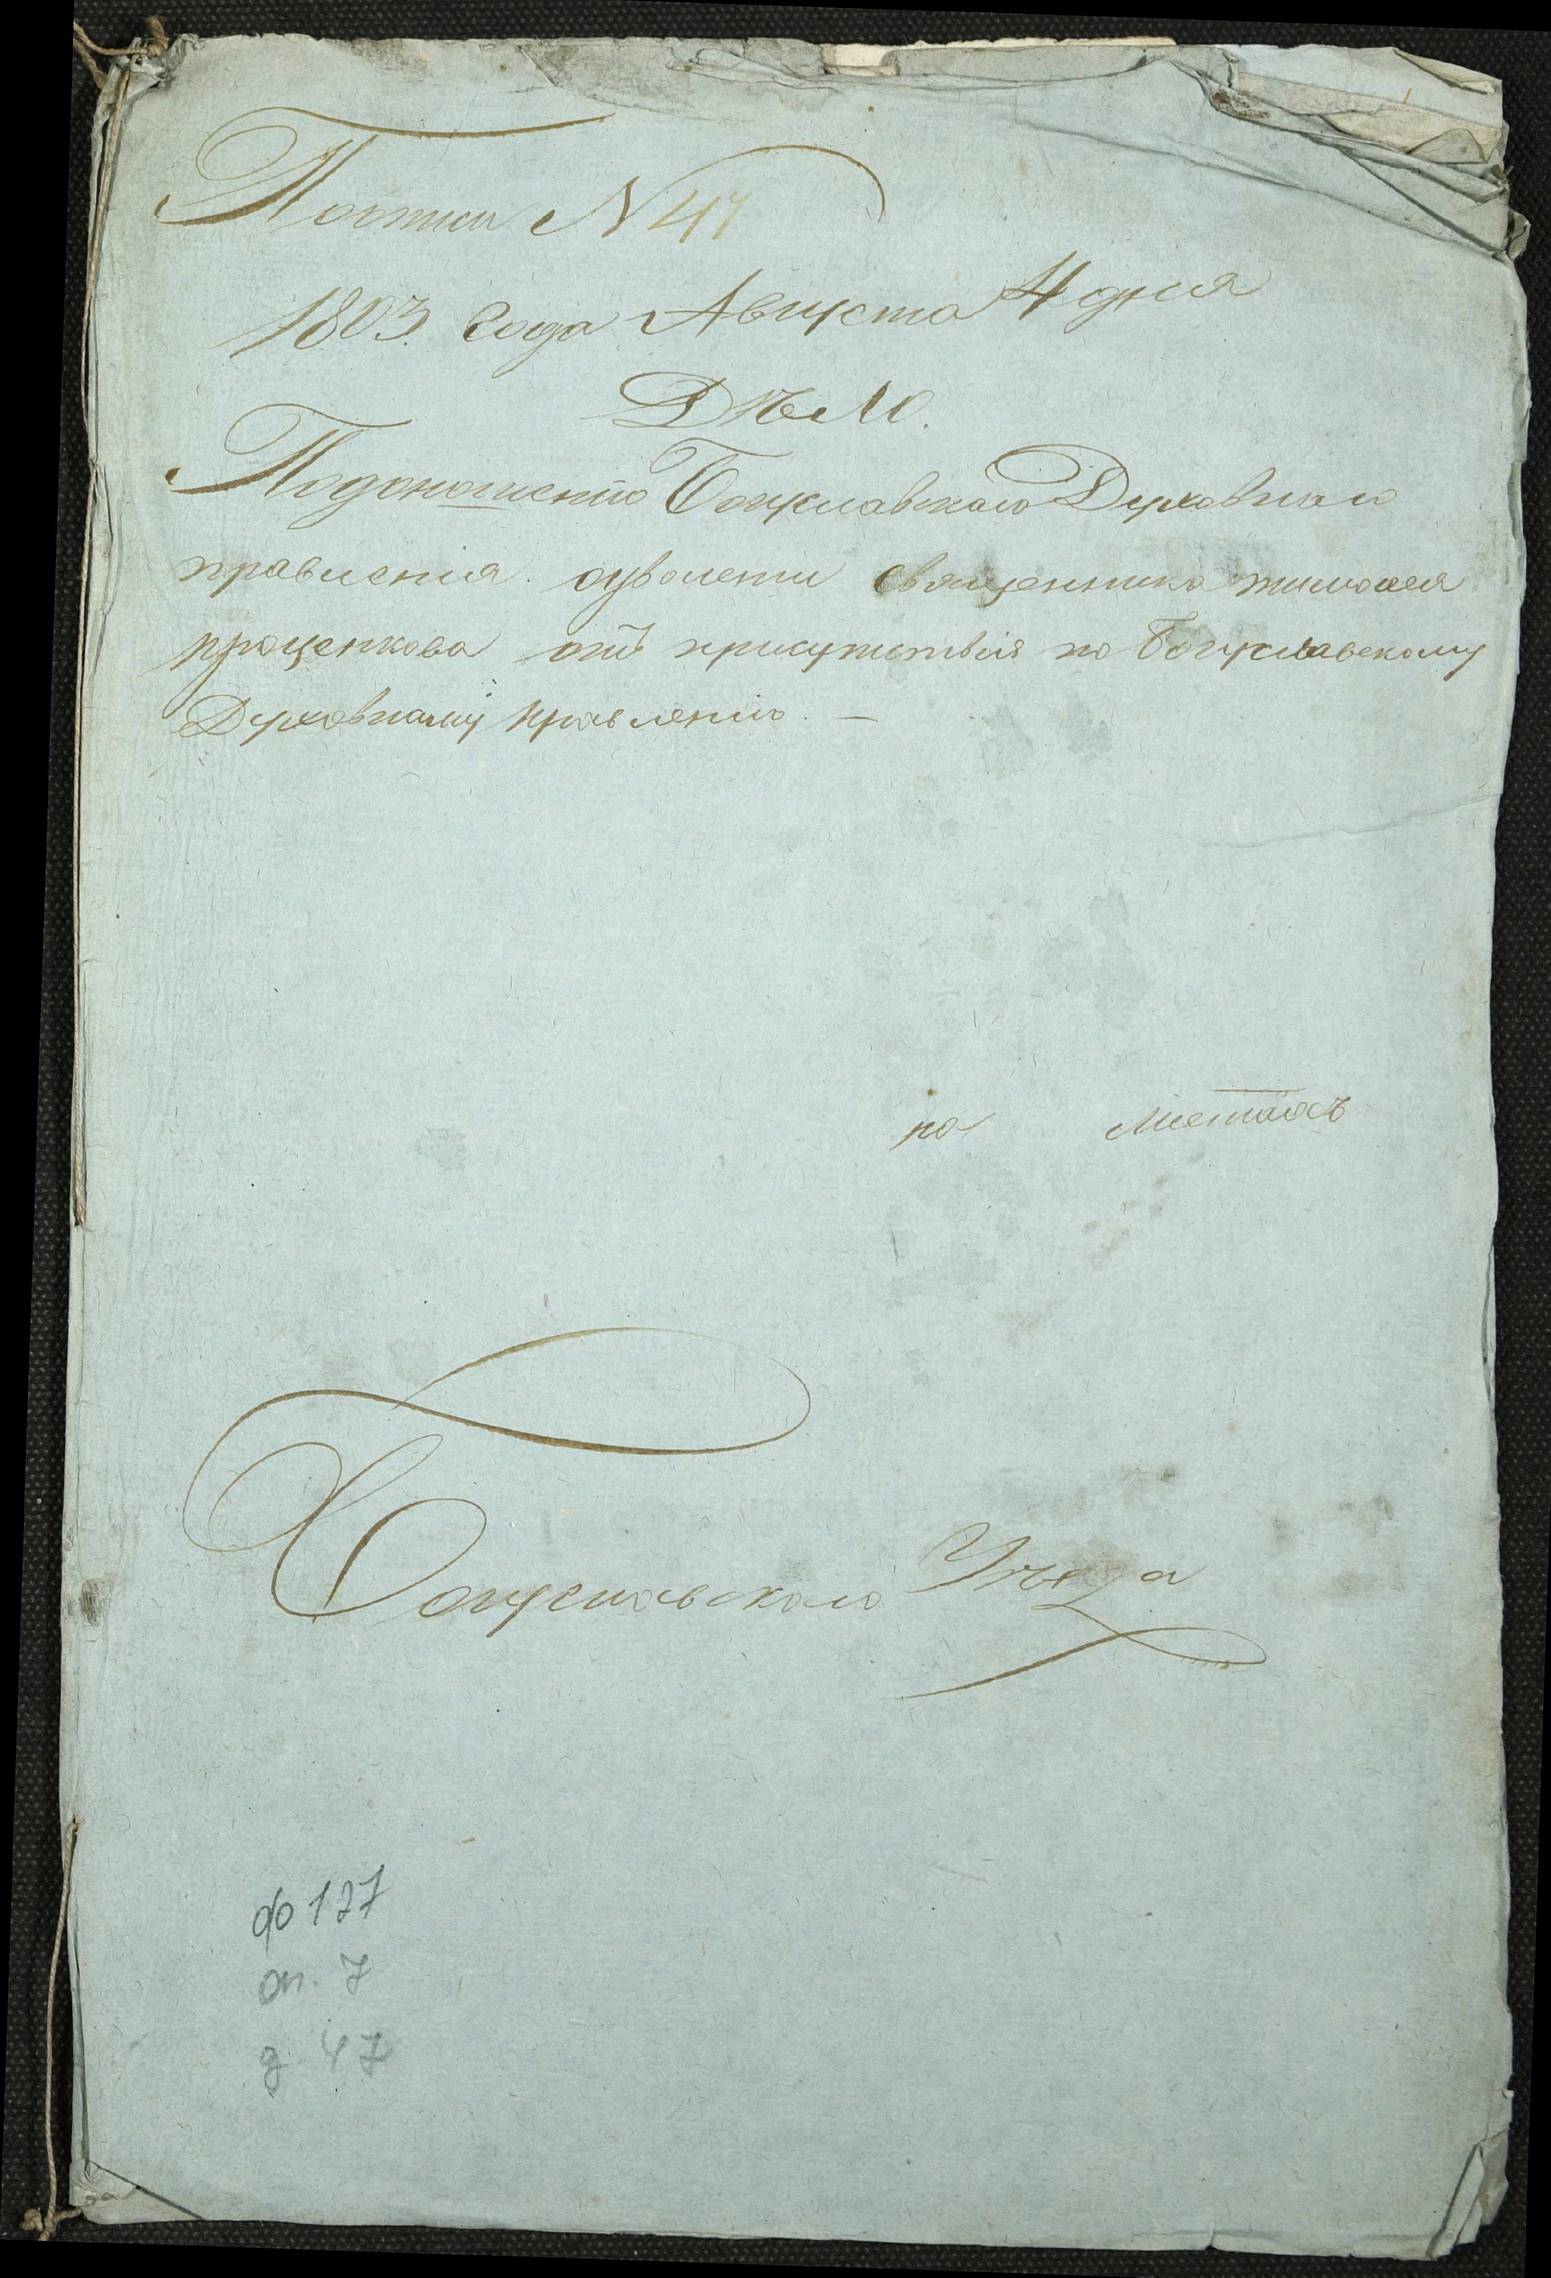 По описи N 47
1803 года Августа 4 дня
Дѣло.
По доношению Богуславского Духовного
правления. о уволении священника тимофея
проценкова отъ присутствия по Богуславскому
Духовному правлению. —
на листахъ
Богуславского Уѣзда
ф 127
оп. 7
д. 47